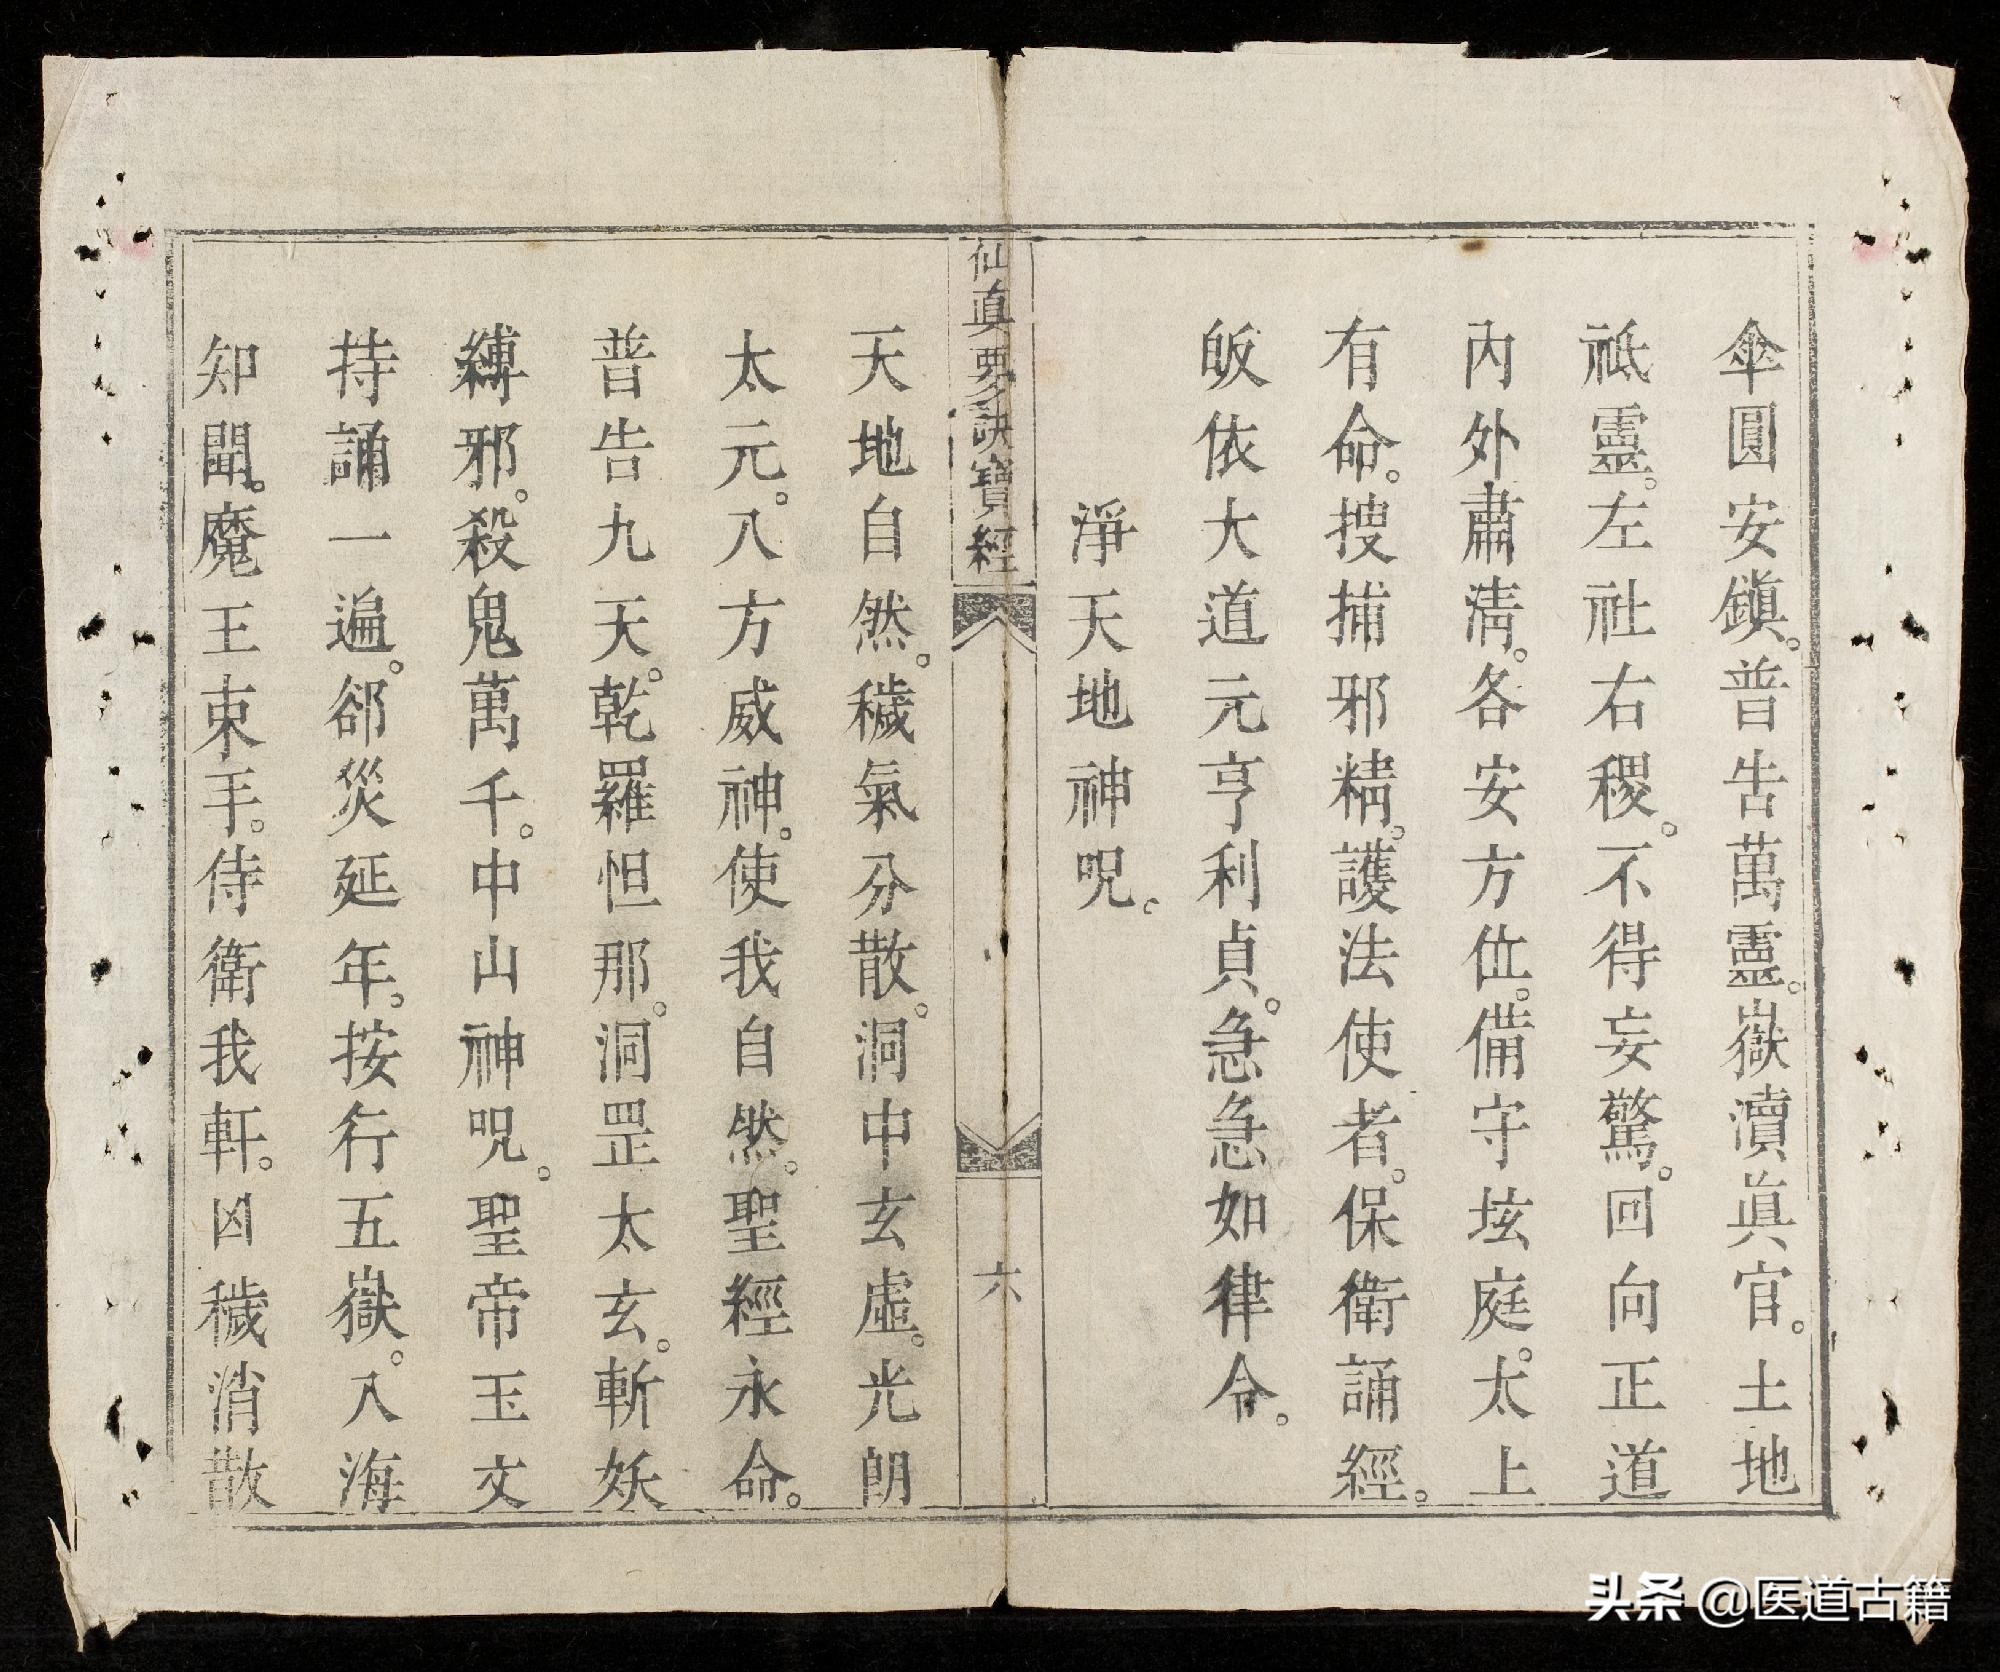 傘圓安鎭。普告萬靈。嶽瀆眞官。土地
祗靈。左社右稷。不得妄驚。回向正道
內外肅淸。各安方位。備守垓庭。太上
有命。搜捕邪精。護法使者。保衛誦經。
皈依大道元亨利貞。急急如律令。
淨天地神呪。
仙眞要訣寶經
六
天地自然。穢氣分散。洞中玄虛。光朗
太元。八方威神。使我自然。聖經永命。
普告九天。乾羅怛那。洞罡太玄。斬妖
縛邪。殺鬼萬千。中山神呪。聖帝玉文
持誦一遍。郤災延年。按行五嶽。入海
知聞。魔王束手。侍衛我軒。凶穢消散
头条 @医道古籍